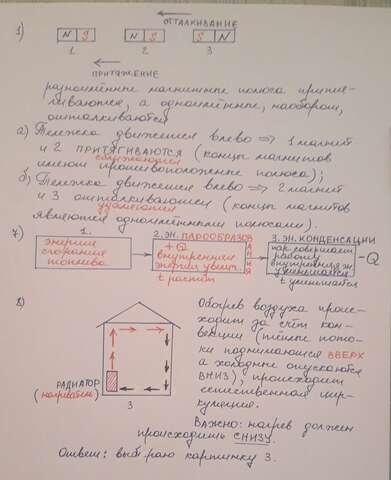 1) ОТТАЛКИВАНИЕ
N S N S S N
1 2 3
ПРИТЯЖЕНИЕ
разноимённые магнитные полюса притя-
гиваются, а одноимённые, наоборот,
отталкиваются
а) Тележка движется влево ⇒ 1 магнит
и 2 ПРИТЯГИВАЮТСЯ (концы магнитов
сближаются
имеют противоположные полюса);
б) Тележка движется влево ⇒ 2 магнит
и 3 отталкиваются (концы магнитов
удаляются
являются одноимёнными полюсами).
7) 1. энергия сгорания топлива
2. ЭН. ПАРООБРАЗОВАНИЯ
+Q
внутренняя
энергия увелич.
t растёт
3. ЭН. КОНДЕНСАЦИИ
пар совершает
работу
внутренняя э.
уменьшается
t уменьшается
-Q
РАДИАТОР
(нагреватель)
3
Обогрев воздуха проис-
ходит за счёт кон-
векции (тёплые пото-
ки поднимаются ВВЕРХ
а холодные опускаются
ВНИЗ), происходит
естественная цир-
куляция.
ВАЖНО: нагрев должен
происходить СНИЗУ.
Ответ: выбираю картинку 3.